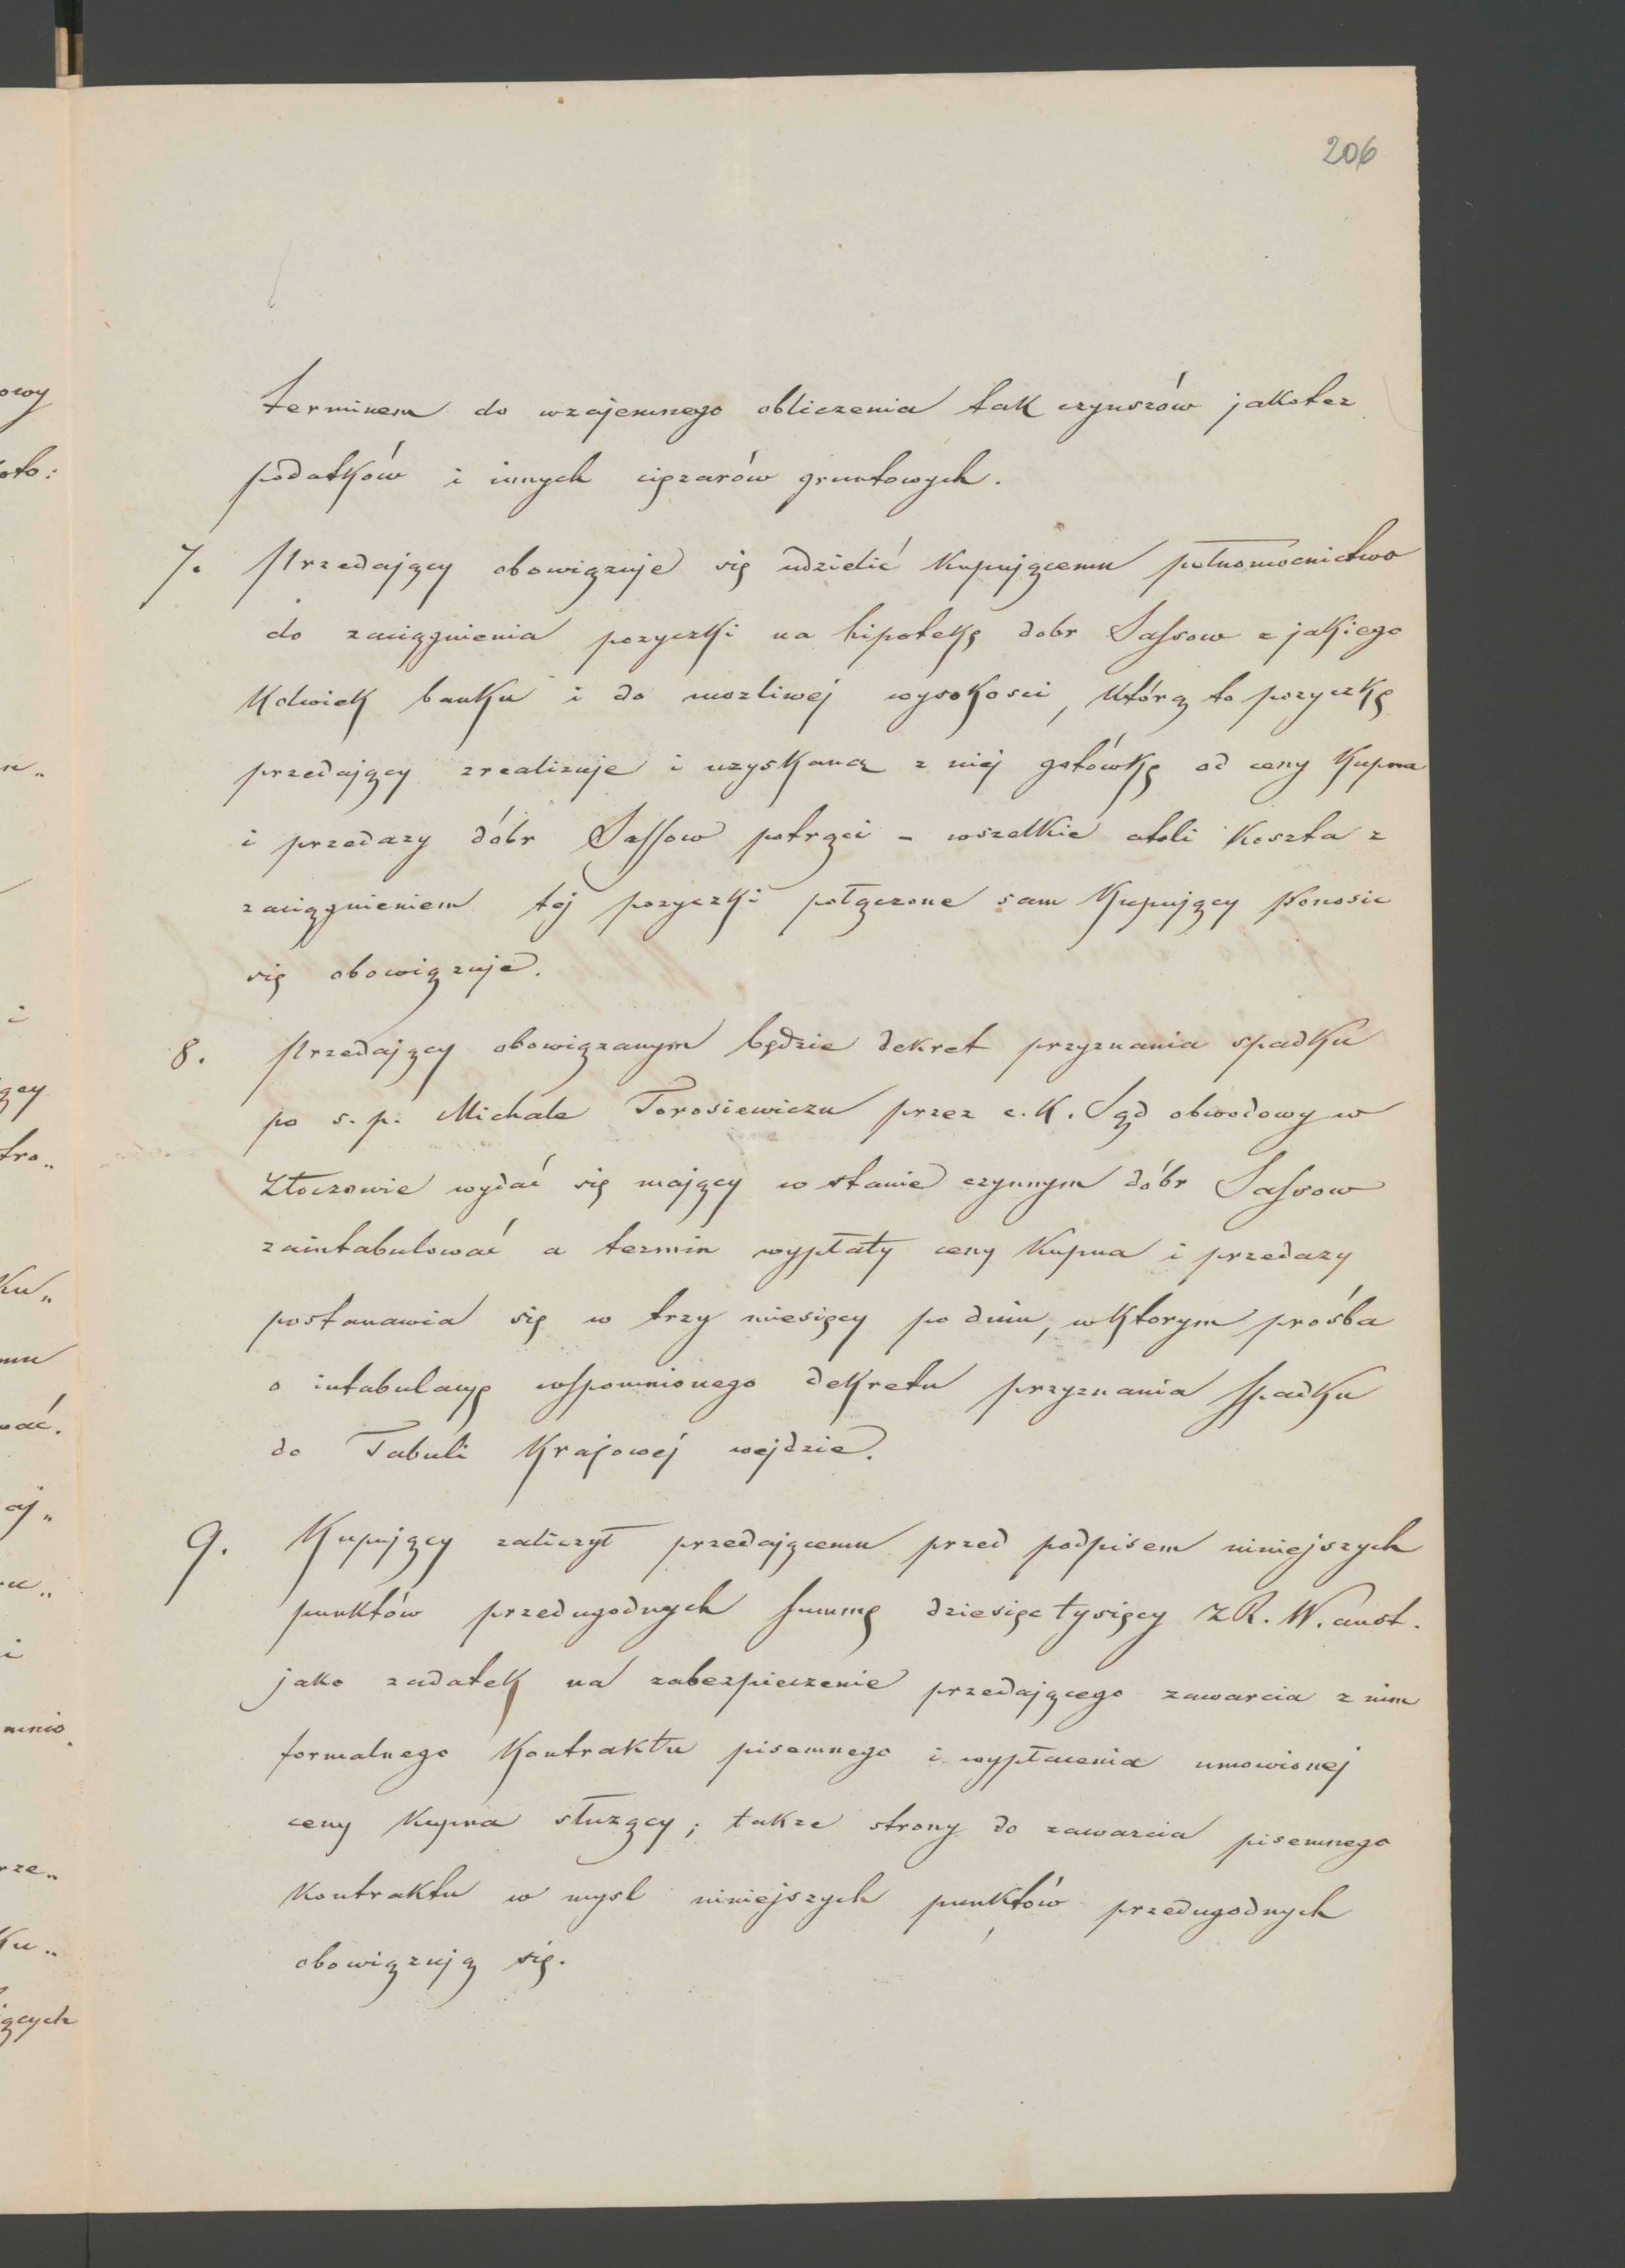 206
terminem do wzajemnego obliczenia tak czynszów jakotez
podatków i innych ciężarów gruntowych.
7. Przedający obowiązuje się udzielić Kupującemu pełnomocnictwo
do zaciągnienia pozyczki na hipotekę dobr Sassow z jakiego
Kolwiek banku i do mozliwej wysokosci, którą to pozyczkę
przedający zrealizuje i uzyskaną z niej gotówkę od ceny Kupna
i przedazy dóbr Sassow potrąci – wszelkie atoli koszta z
zaciągnieniem tej pozyczki połączone sam Kupujący ponosic
się obowiązuje.
8. Przedający obowiązanym będzie dekret przyznania spadku
po s. p. Michale Torosiewiczu przez c. K. Sąd obwodowy w
Złoczowie wydać się mający w stanie czynnym dóbr Sassow
zaintabulować a termin wypłaty ceny Kupna i przedazy
postanawia się w trzy miesięcy po dniu, w ktorym prośba
o intabulacyę wspomnionego dekretu przyznania spadku
do Tabuli Krajowéj wejdzie.
9. Kupujący zaliczył przedającemu przed podpisem niniejszych
punktów przedugodnych summę dziesięc tysięcy ZR. W. aust.
jako zadatek na zabezpieczenie przedającego zawarcia z nim
formalnego Kontraktu pisemnego i wypłacenia umowionej
ceny Kupna służący; takze strony do zawarcia pisemnego
Kontraktu w mysl niniejszych punktów przedugodnych
obowiązują się.
owy
oto:
i
ący
tro„
Ku„
mu
aj„
i
rze„
Ku„
ących